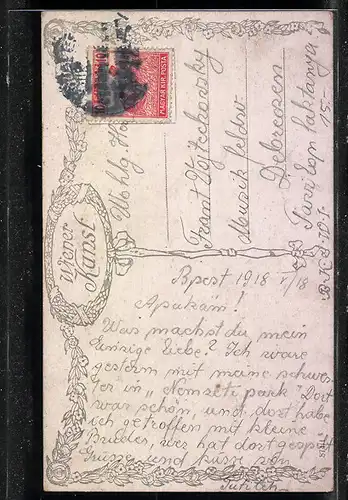 MAGYAR KIR. POSTA
Wiener
Kunst.
Wohlg. H
Franz Wojtechowsky
Musik feldw
Debreczen
Bpest 1918 V/18
Apukám!
Was machst du mein
Einzige Liebe? Ich ware
gestern mit meine schwes-
ter in „Nemzeti park" Dort
war schön, und dort habe
ich getroffen mit kleine
Bruder, wer hat dort gespilt
Grüsse und küsst von